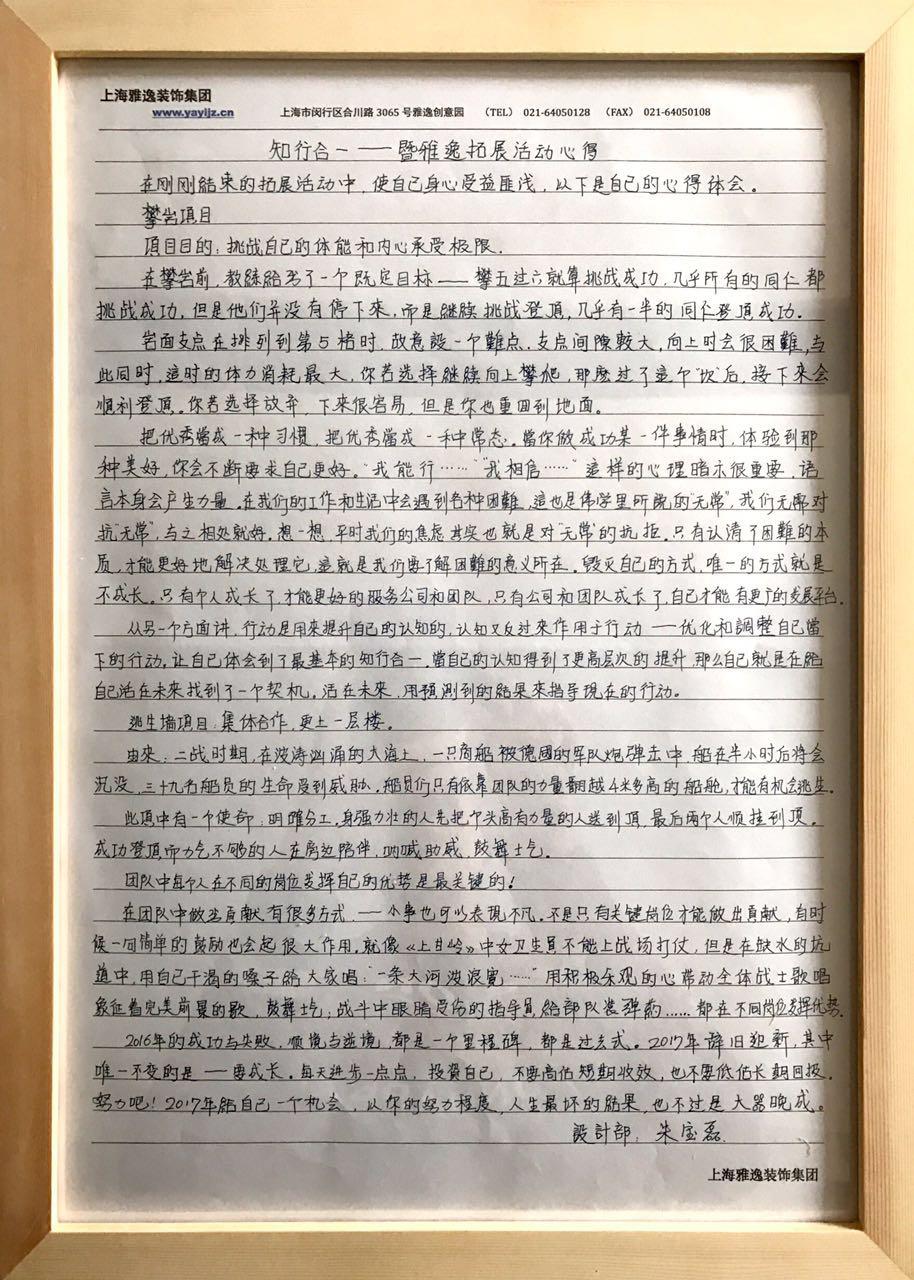 上海雅逸装饰集团
www.yayijz.cn
上海市闵行区合川路 3065 号雅逸创意园 （TEL） 021-64050128 （FAX） 021-64050108
知行合一——暨雅逸拓展活动心得
在刚刚結束的拓展活动中，使自己身心受益匪浅，以下是自己的心得体会。
攀岩項目
項目目的：挑战自己的体能和内心承受极限.
在攀岩前，教練給当了一个既定目标——攀五过六就算挑战成功，几乎所有的同仁都
挑战成功，但是他们并没有停下来，而是継续挑战登頂，几乎有一半的同仁登頂成功.
岩面支点在排列到第5格时，故意設一个難点，支点间隙較大，向上时会很困難，与
此同时，這时的体力消耗最大，你若选择継续向上攀爬，那麽过了這个"坎"后，接下来会
順利登頂。你若选择放弃，下来很容易，但是你也重回到地面。
把优秀當成一种习惯，把优秀當成一种常态。當你做成功某一件事情时，体验到那
种美好，你会不断要求自己更好。"我能行……""我相信……"這样的心理暗示很重要，语
言本身会产生力量。在我们的工作和生活中会遇到各种困難，這也是佛学里所説的"无常"，我们无需对
抗"无常"，与之相处就好。想一想，平时我们的焦虑其实也就是对"无常"的抗拒。只有认清了困難的本
质，才能更好地解决处理它，這就是我们要了解困難的意义所在。毁灭自己的方式，唯一的方式就是
不成长。只有个人成长了，才能更好的服务公司和团队，只有公司和团队成长了，自己才能有更广的发展平台.
从另一个方面讲，行动是用来提升自己的认知的，认知又反过来作用于行动——优化和調整自己當
下的行动，让自己体会到了最基本的知行合一，當自己的认知得到了更高层次的提升，那么自己就是在給
自己活在未来找到了一个契机。活在未来，用預測到的結果来指导现在的行动。
逃生墙項目：集体合作，更上一层楼。
由来：二战时期，在波涛汹涌的大海上，一只商船被德國的军队炮弹击中，船在半小时后将会
沉没，三十九名船员的生命受到威胁。船員们只有依靠团队的力量翻越4米多高的船舱，才能有机会逃生.
此項中有一个使命：明確分工，身强力壮的人先把个头高有力量的人送到頂，最后两个人順挂到頂。
成功登頂而力气不够的人在旁边陪伴，呐喊助威，鼓舞士气。
团队中每个人在不同的岗位发挥自己的优势是最关键的！
在团队中做出貢献有很多方式，一件小事也可以表現不凡。不是只有关键岗位才能做出貢献，有时
候一句简单的鼓励也会起很大作用，就像《上甘岭》中女卫生員不能上战场打仗，但是在缺水的坑
道中，用自己干渴的嗓子給大家唱："一条大河波浪宽……"用积极乐观的心带动全体战士歌唱
象征着完美前景的歌，鼓舞士气；战斗中眼睛受伤的指导員給部队装弹药……都在不同岗位发挥优势.
2016年的成功与失败，顺境与逆境，都是一个里程碑，都是过去式。2017年辞旧迎新，其中
唯一不变的是——要成长。每天进步一点点，投資自己，不要高估短期收效，也不要低估长期回报。
努力吧！2017年給自己一个机会，以你的努力程度，人生最坏的結果，也不过是大器晚成。
設計部：朱宝磊
上海雅逸装饰集团